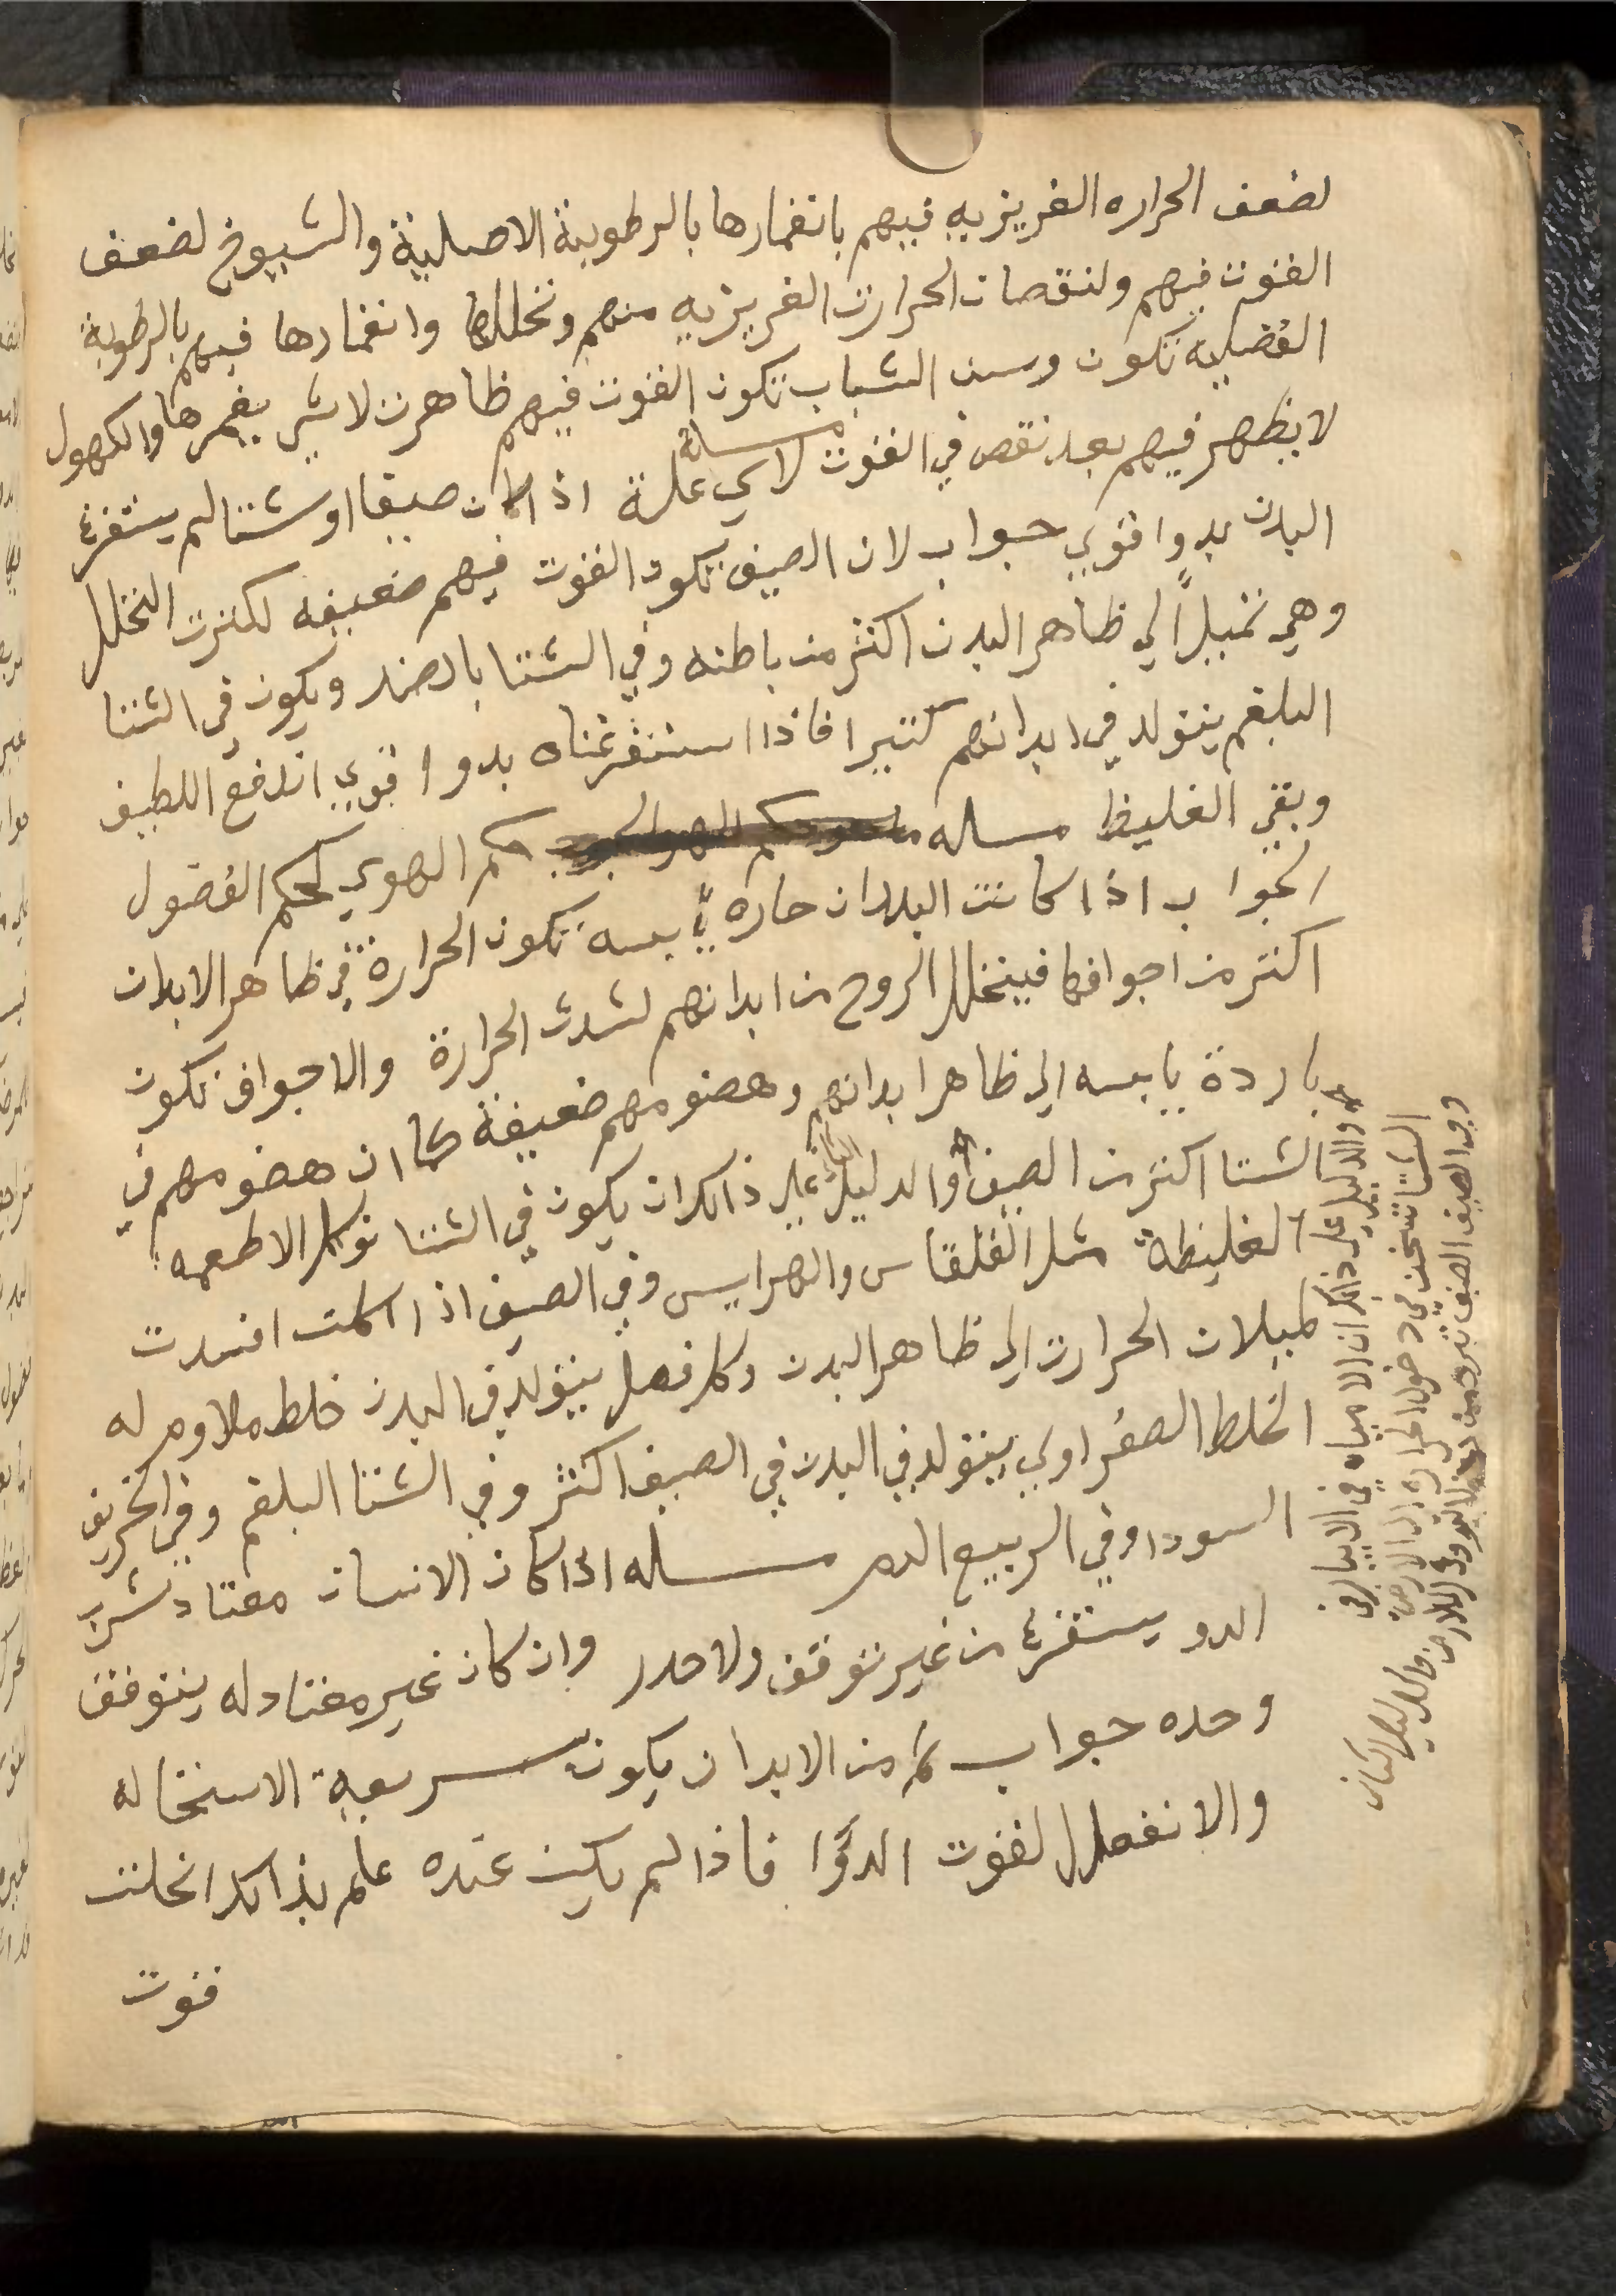 لضعف الحراره الغريزيه فيهم بانغمارها بالرطوبة الاصلية والشيوخ لضعف
القوت فيهم ولنقصان الحرارت الغريزيه منهم وتحللها وانغمارها فيهم بالرطوبة
الفضليه تكون وسن الشباب تكون القوت فيهم ظاهرت لا شي يغمرها والكهول
لا يظهر فيهم بعد نقص في القوت مسلة لاي علة اذا كان صيفا او شتا لم يستفرغ
البدن بدوا قوي جواب لان الصيف تكون القوت فيهم ضعيفه لكثرت التحلل
وهي تميل الي ظاهر البدن اكثر من باطنه وفي الشتا بالضد ويكون في الشتا
البلغم يتولد في ابدانهم كثيرا فاذا استفرغناه بدوا قوي اندفع اللطيف
وبقي الغليظ مسله حكم الهوي لحكم الفصول
الجواب اذا كانت البلدان حاره يابسه تكون الحرارة في ظاهر الابدان
اكثر من اجوافها فيتحلل الروح من ابدانهم لشدت الحرارة والاجواف تكون
باردة يابسه الي ظاهر ابدانهم وهضومهم ضعيفة كما ان هضومهم في
الشتا اكثر من الصيف والدليل علي ذالك ان يكون في الشتا توكل الاطعمه
الغليظة مثل القلقاس والهرايس وفي الصيف اذا اكلت افسدت
لميلان الحرارت الي ظاهر البدن وكل فصل يتولد في البدن خلط ملاوم له
الخلط الصفراوي يتولد في البدن في الصيف اكثر وفي الشتا البلغم وفي الخريف
السودا وفي الربيع الدم مسله اذا كان الانسان معتاد شرب
الدو يستفرغ من غير توقف ولا حدر وان كان غير معتاد له يتوقف
وحده جواب ثم من الابدان يكون سريعة الاستحاله
والانفعال لقوت الدوا فاذا لم يكن عنده علم بذالك انحلت
قوت
والدليل علي ذالك ان الامياه في الابيار في
الشتا تسخن في دخول الحراره الي الارض
وفي الصيف تبرد